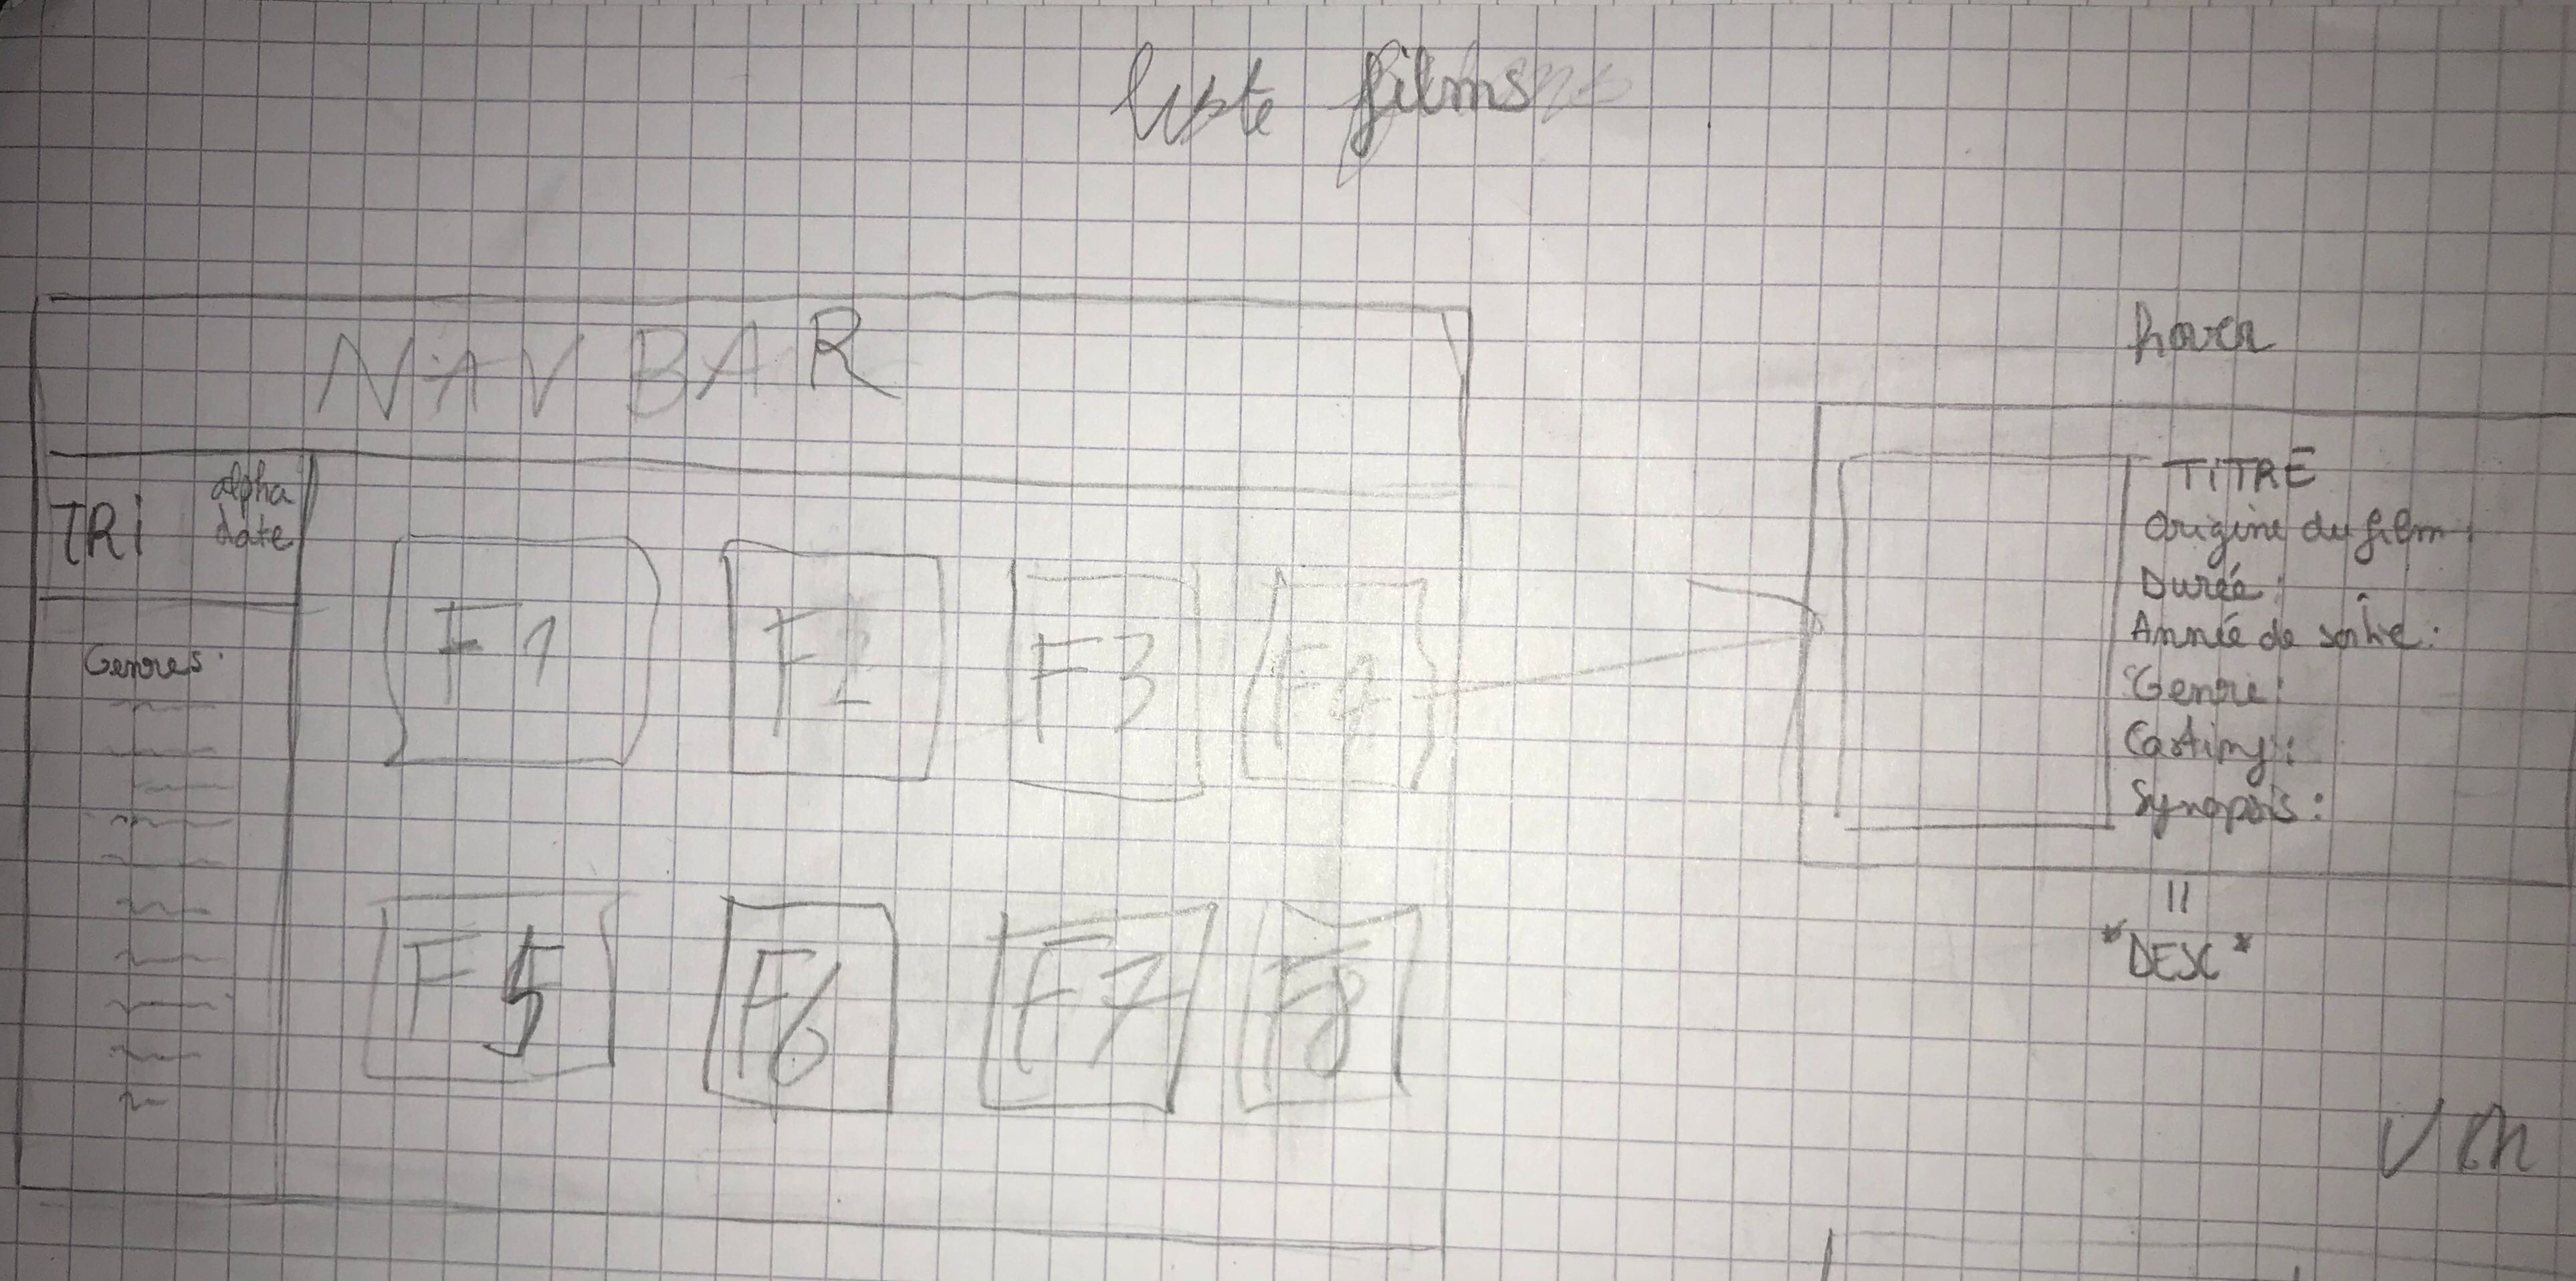 liste films
NAV BAR
TRi
alpha
date
Genres:
F1
F2
F3
F4
F5
F6
F7
F8
hover
TITRE
Origine du film:
Durée:
Année de sortie:
Genre:
Casting:
Synopsis:
"DESC"